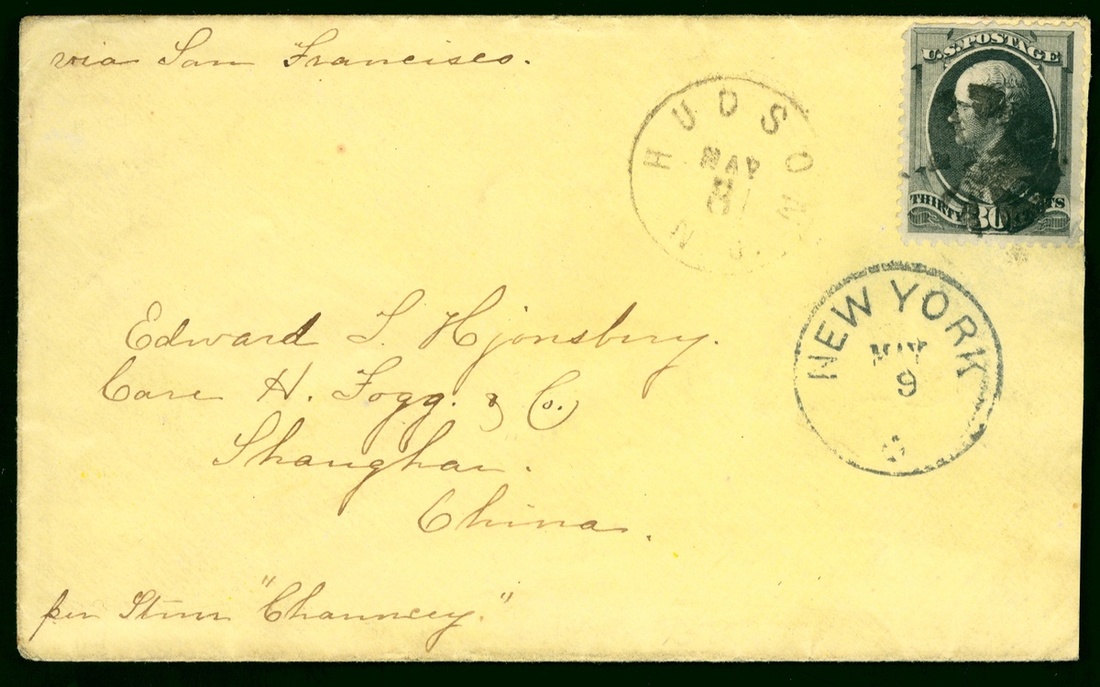 via San Francisco.
U.S. POSTAGE
THIRTY 30 CENTS
HUDSON
N.J.
NEW YORK
MAY
9
Edward T. Hjonsbery.
Care H. Fogg. & Co.
Shanghai.
China.
per Stmr "Chauncey."